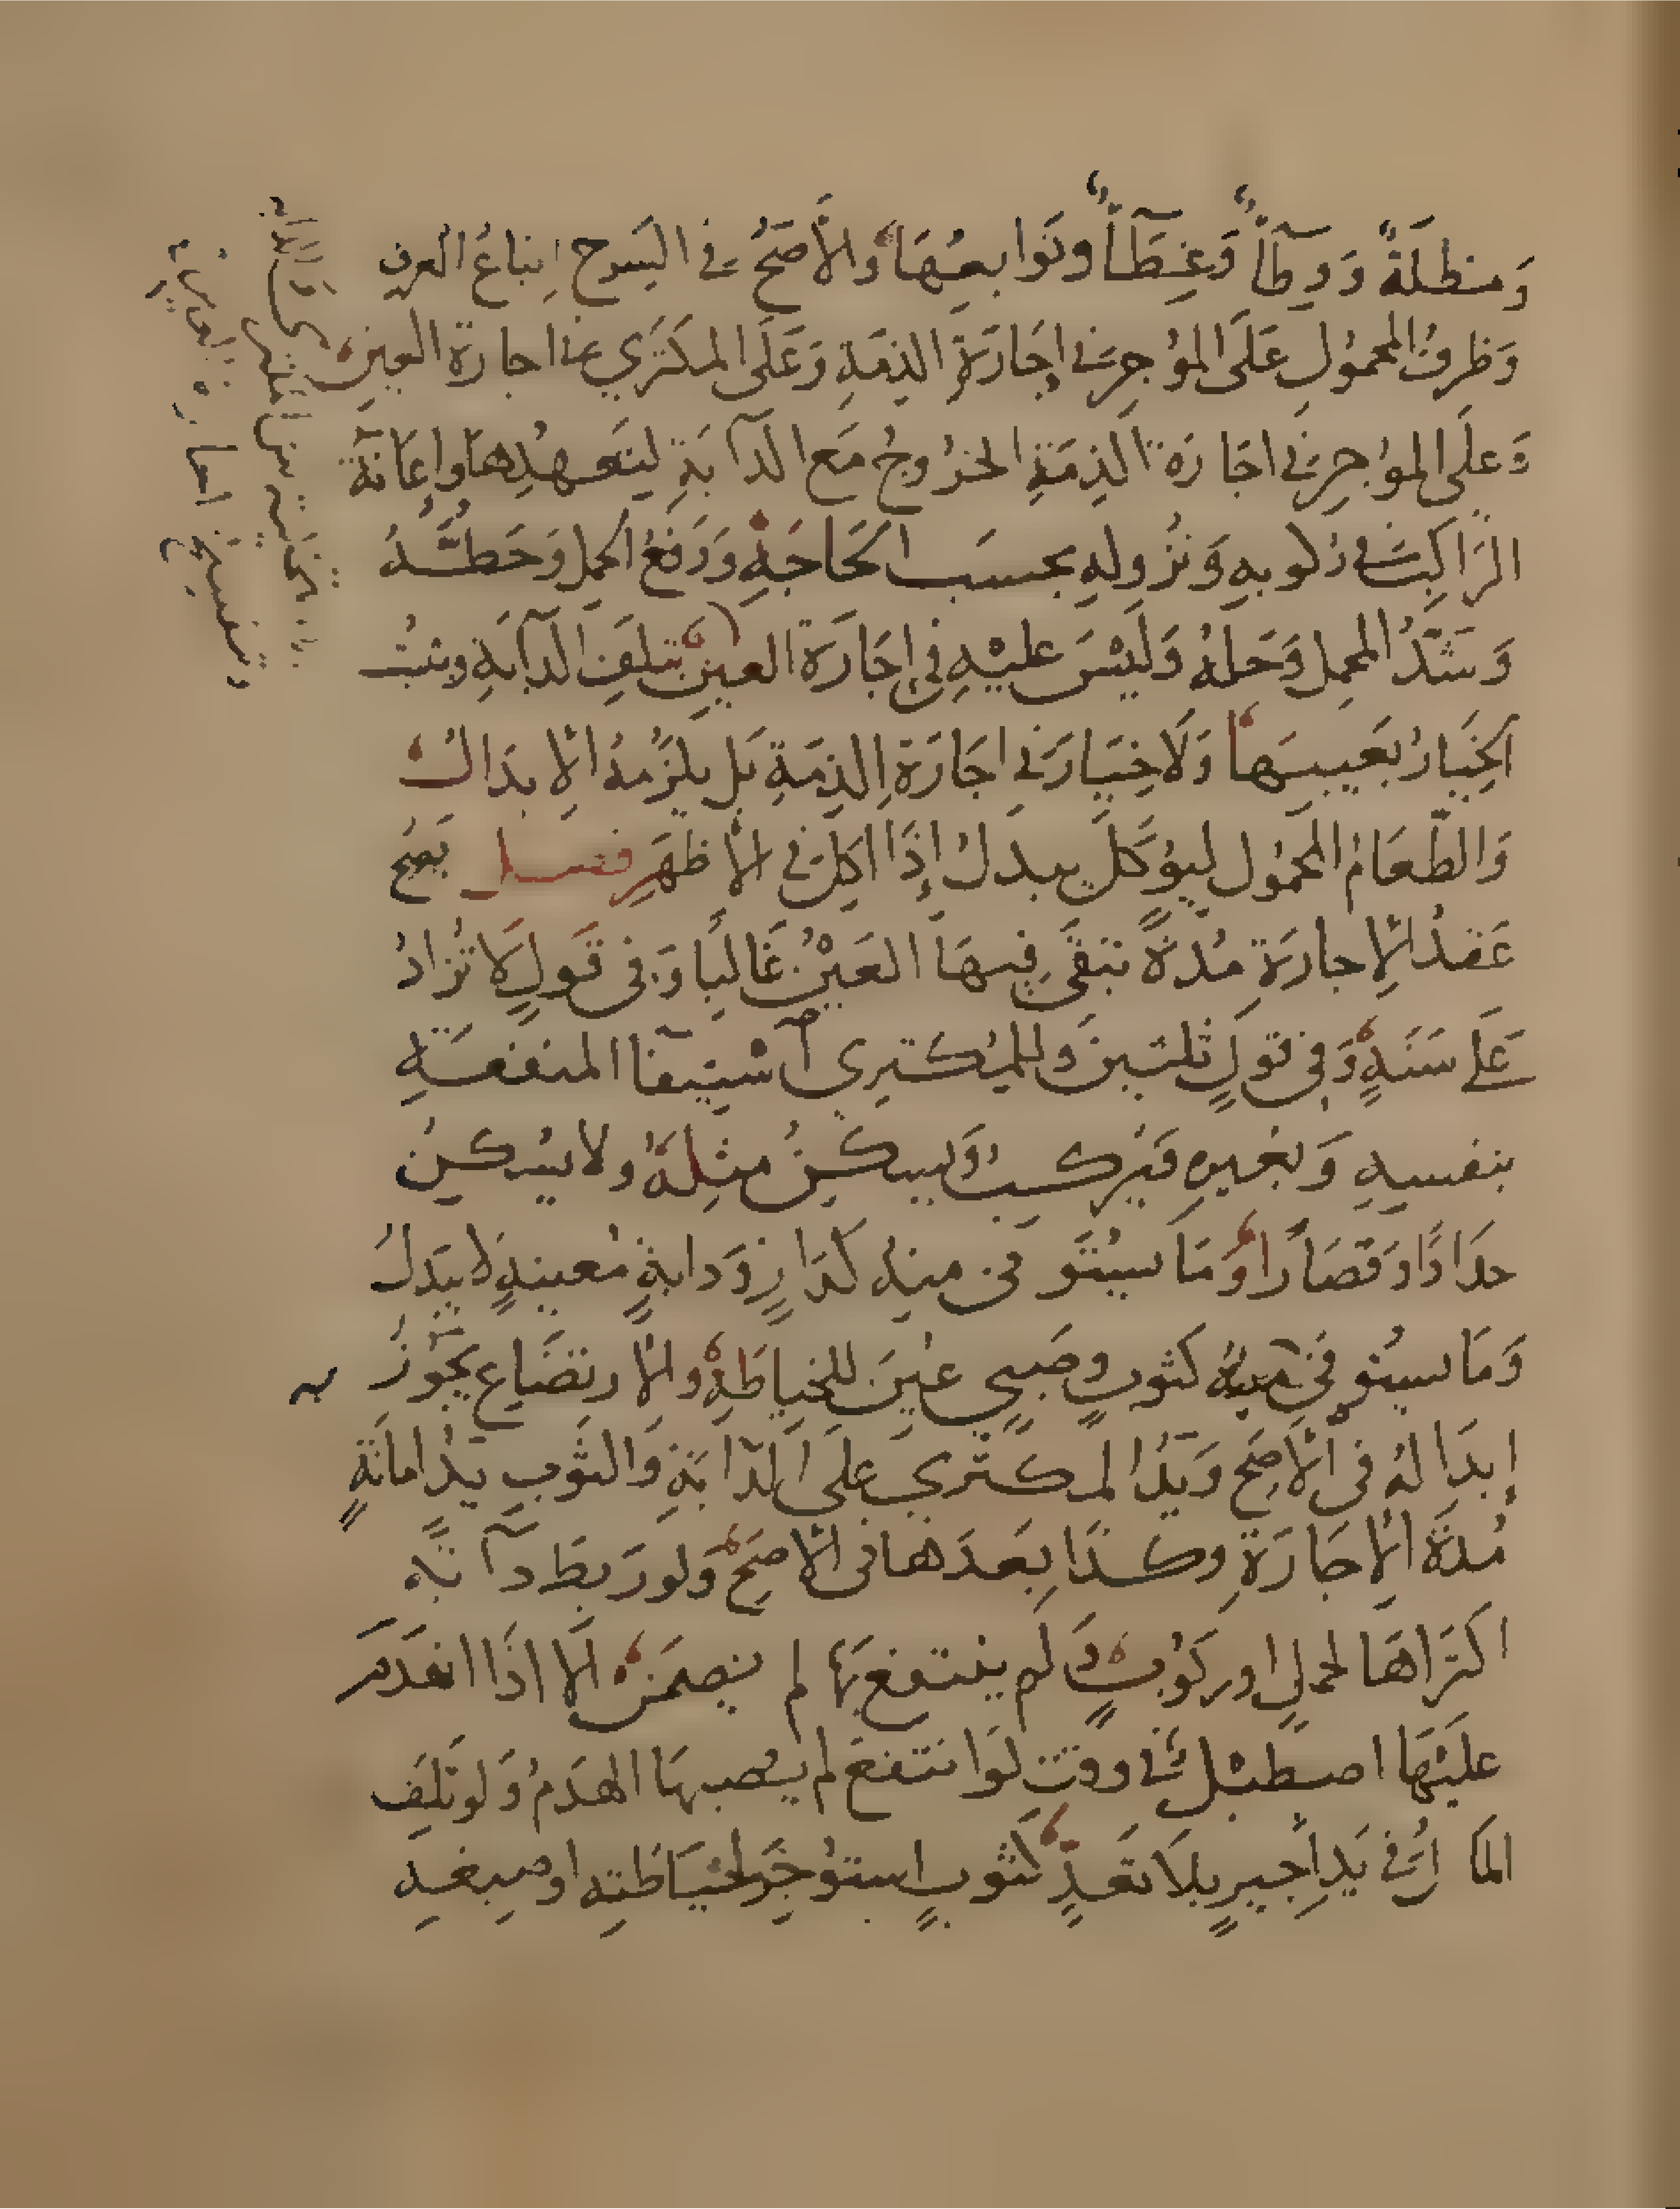 وَمِظلَةً وَوِطَآءً وَغِطَآءً وتَوابعِهَا وَالأَصَحُّ في السَرج اِتباعُ العرف
وَظرفُ المحمُولِ عَلَى المؤجِرِ في إجَارَةِ الذِمَةِ وَعَلَى المكتَرَي في اجارة العين
وَعلَى المؤجِرِ في اجَارَة الذِمَةِ الخرُوجُ مَع الدآبَةِ ليتَعهُدِهَا واِعَانَة
الرَّاكِبِ في رُكوبهِ وَنزُولِهِ بحسَب الحَاجَةِ وَرَفعُ الحمل وَحَطُّهُ
وَشَدُّ المحمِل وَحَلهُ وَلَيْسَ عليْهِ في إجَارَة العين بتلَفِ الدآبَةِ ويثبُت
الخِيَارُ بعَيبِهَا وَلَا خِيَارَ في اجَارَة الذِمَةِ بَل يلزَمُهُ الاِبدَالُ
وَالطَّعَامُ المحمُول ليُؤكَلَ يبدَلُ إذَا اكِلَ في الأظهَرِ فصل يَصِحُ
عَقدُ الاِجارَةِ مُدةً تبقَى فِيهَا العَيْنُ غَالبًا وَفى قَولٍ لا تزَادُ
عَلَى سَنَةٍ وَفي قولٍ ثلثينَ وَللمُكتَرِي آستِيفا المنفعَةِ
بنفسِهِ وَبغيرهِ فيُركبُ وَيسكِنُ مثِلَهُ ولا يسُكِنُ
حدَادًا وَقصَارًا وَمَا يسُتَوفى منِهُ كدَارٍ وَدابةٍ مُعينةٍ لا يبَدلُ
وَمَا يستوفى بهِ كثوبٍ وصَبي عيِنَ للخِياطَةِ والارتضَاعِ يجُوزُ
إبدَالهُ فى الأَصِحَ وَيَدُ المكتَري عَلَى الدَابَةِ وَالثَوبِ يَدُ امانَةٍ
مُدَةَ الاِجَارَةِ وكَذَا بعَدَهَا فى الاَصِحَ وَلو رَبطَ دآبَّة
اكترَاهَا لحملٍ اوركوُبٍ وَلَم ينتفع بهَا لم يضمَن الَا اذَا انهدَمَ
علَيْهَا اصطبْل في وقتٍ لَو انتفعَ لم يُصبهَا الهدَمُ وَلو تلِفَ
المَالُ في يَدِ أجيرٍ بلَا تَعَدٍّ كثوبٍ استؤجَر لخيَاطَتِه اوصبغهِ